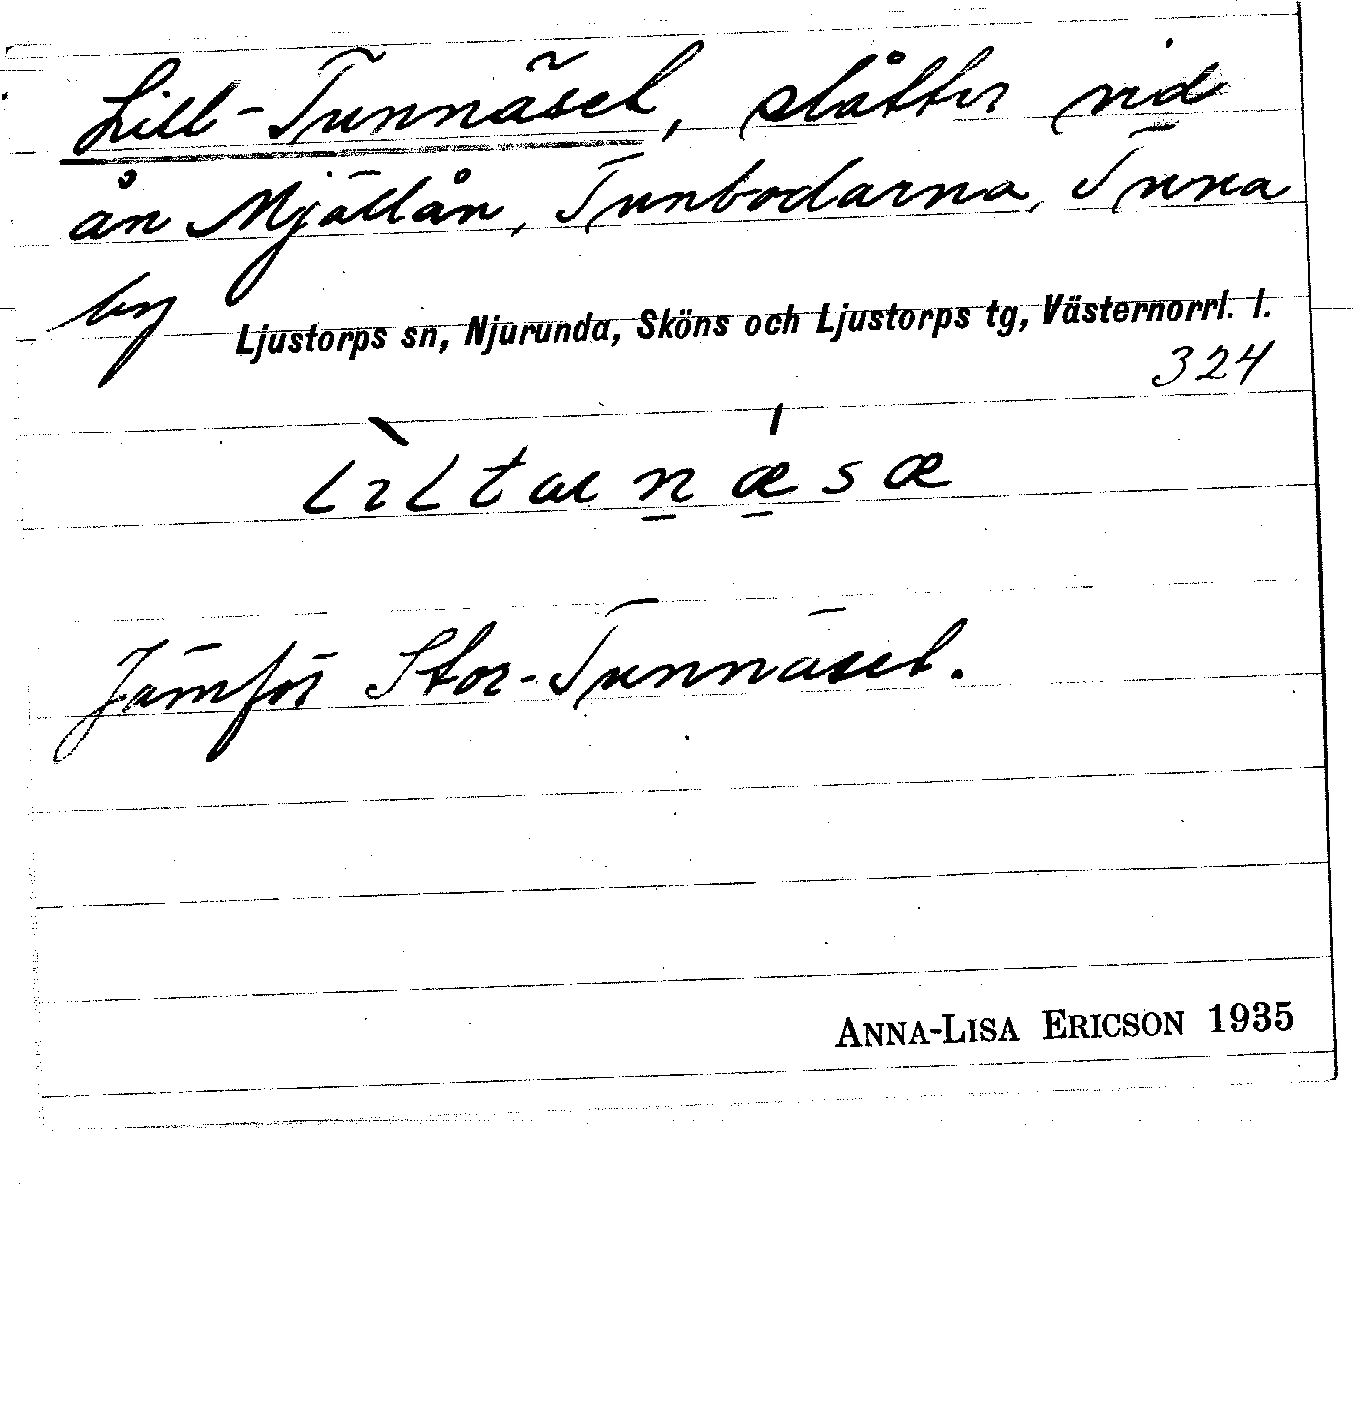 Lill-Tunnäset, slåtter vid
ån Mjällån, Tunbodarna, Tuna
by Ljustorps sn, Njurunda, Sköns och Ljustorps tg, Västernorrl. l.
324
Jämför Stor-Tunnäset.
ANNA-LISA ERICSON 1935